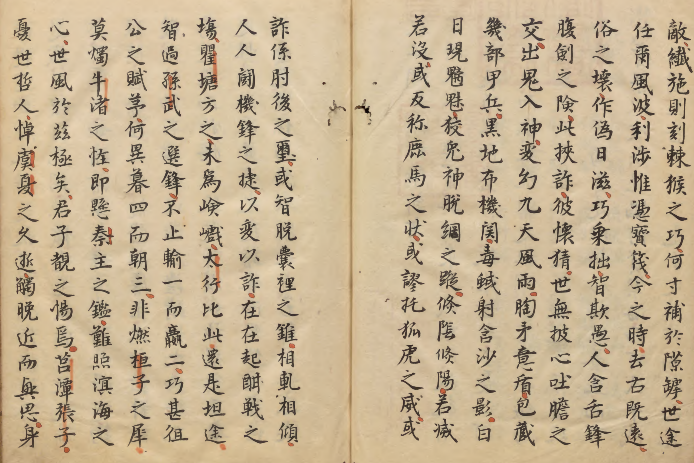 敵纎施則刻棘猴之巧何寸補於隙罅世途
任爾風波利涉惟憑寶筏今之時去古既遠
俗之壞作僞日滋巧乗拙智欺愚人含舌鋒
腹劍之険此挾詐彼懐猜世無披心吐膽之
交出鬼入神変幻九天風雨胸矛意盾包蔵
幾部甲兵黒地布機関毒蜮射含沙之影白
日現魑魅狡兎神脫網之蹤倐陰倐陽若滅
若沒或反称鹿馬之状或謬托狐虎之威或
詐係肘後之璽或智脫嚢裡之錐相軋相傾
人人闘機鋒之捷以変以詐在在起餌戦之
場瞿塘方之未為嶮巇太行比此還是坦途
智過孫武之選鋒不止輸一而贏二巧甚狙
公之賦芧何異暮四而朝三非燃桓子之犀
莫燭牛渚之恠即懸秦主之鑑難照溟海之
心世風於玆極矣君子観之惕焉莒潭張子
憂世哲人悼虞身之久逝觸晩近而興思身